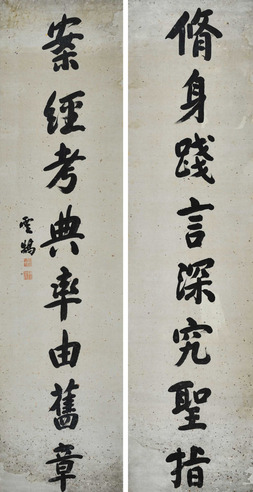 脩身踐言深究聖指
案經考典率由舊章